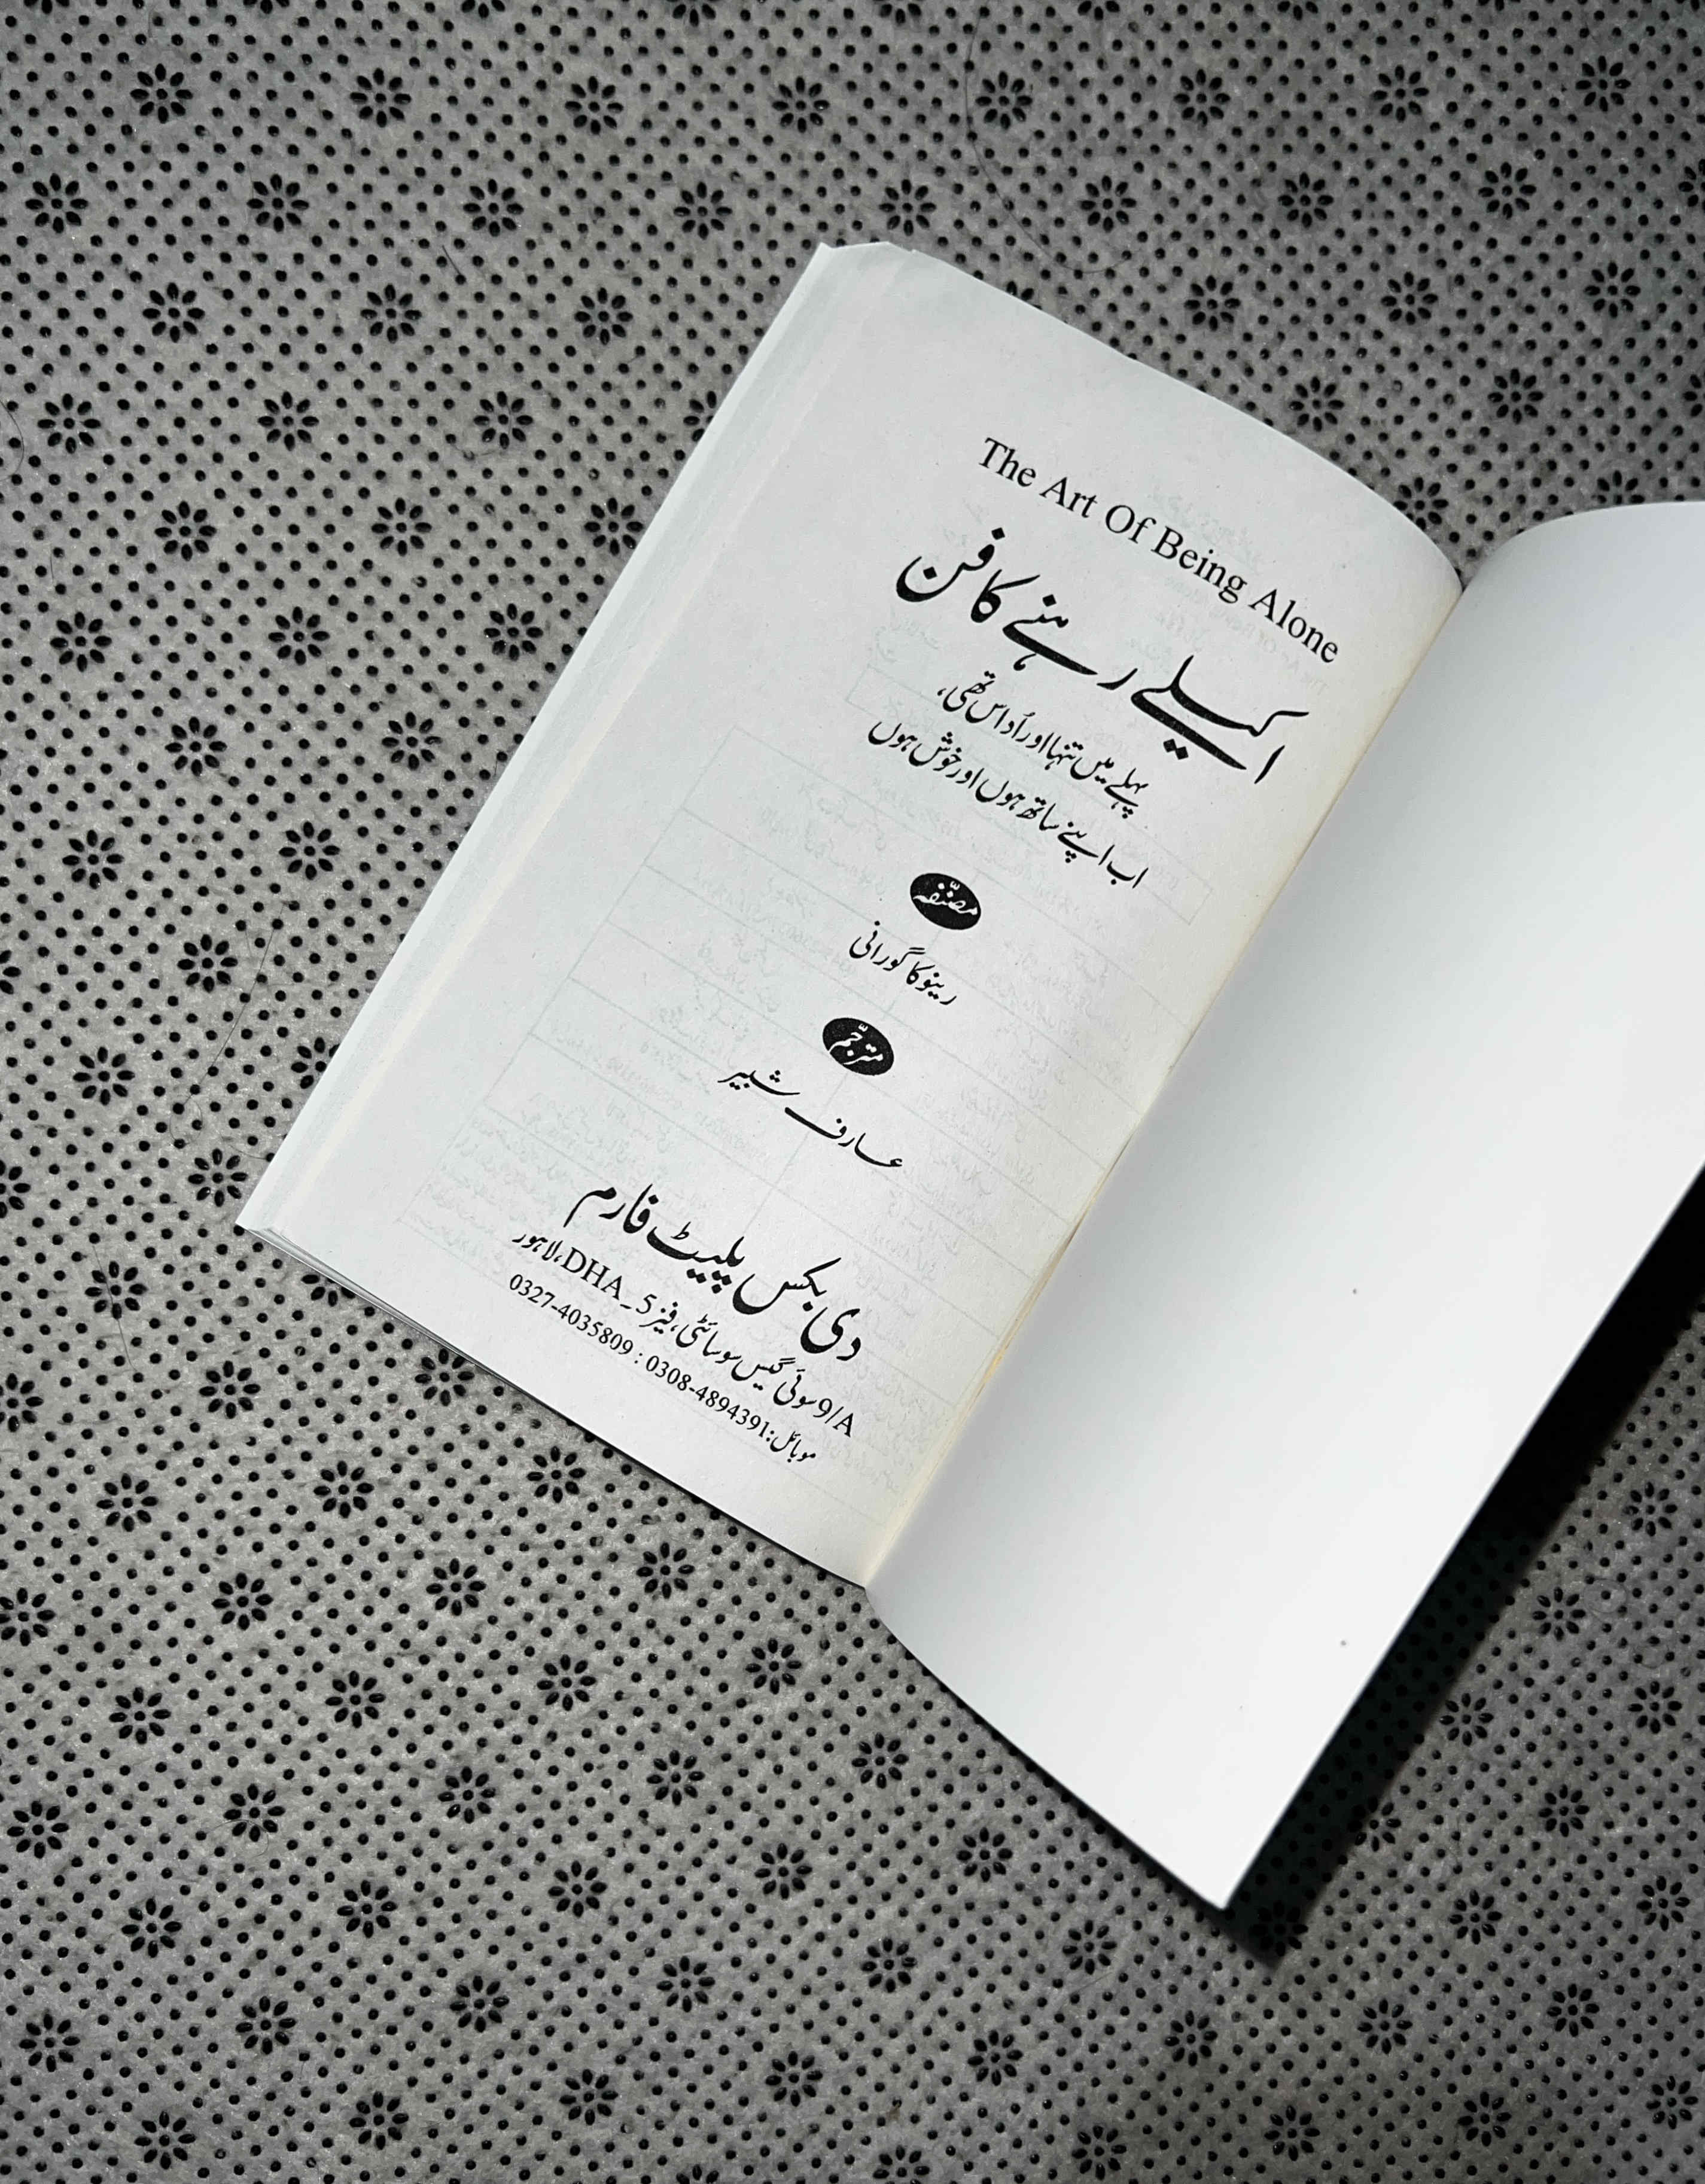 The Art Of Being Alone
اکیلے رہنے کا فن
پہلے میں تنہا اور اُداس تھی،
اب اپنے ساتھ ہوں اور خوش ہوں
مصنّفہ
رینوکا گورانی
مترجّم
عارف شبیر
دی بکس پلیٹ فارم
9/A سوئی گیس سوسائٹی، فیز 5 ـ DHA، لاہور
موبائل: 0308-4894391 : 0327-4035809